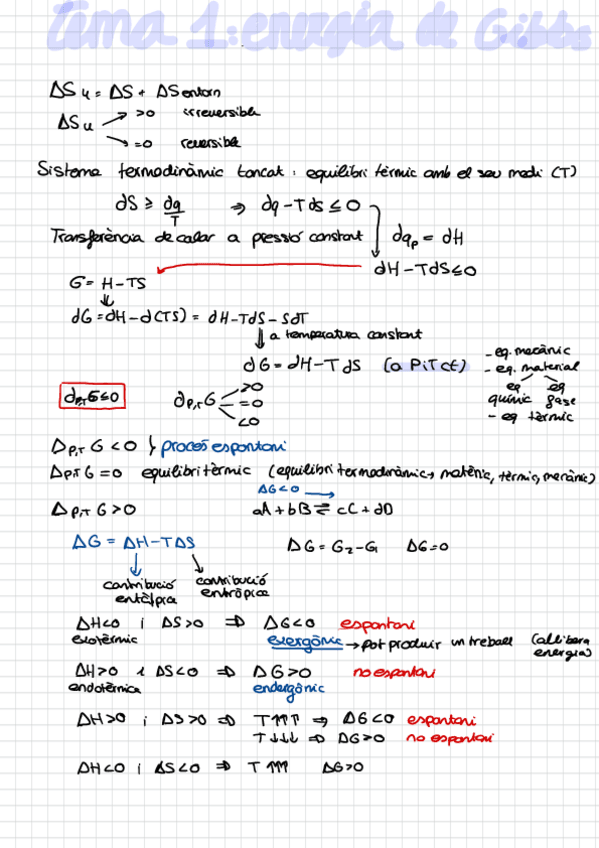 Tema 1: energia de Gibbs
ΔS u = ΔS + ΔSentorn
ΔS u → >0 irreversible
→ =0 reversible
Sistema termodinàmic tancat : equilibri tèrmic amb el seu medi (T)
dS ≥ dq/T ⇒ dq - Tds ≤ 0
Transferència de calor a pressió constant dq p = dH
dH - TdS ≤ 0
G = H - TS
dG = dH - d(TS) = dH - TdS - SdT
⇓ a temperatura constant
dG = dH - TdS (a P i T ct)
- eq. mecànic
- eq. material
eq químic eq fase
- eq tèrmic
d P,T G ≤ 0
d P,T G >0
=0
<0
Δ P,T G < 0 } procés espontani
Δ P,T G = 0 equilibri tèrmic (equilibri termodinàmic → matèric, tèrmic, mecànic)
ΔG < 0 →
Δ P,T G > 0 aA + bB ⇄ cC + dD
ΔG = ΔH - TΔS ΔG = G2 - G1 ΔG = 0
contribució entàlpica contribució entròpica
ΔH<0 i ΔS>0 ⇒ ΔG<0 espontani
exotèrmic exergònic → pot produir un treball (allibera energia)
ΔH>0 i ΔS<0 ⇒ ΔG>0 no espontani
endotèrmica endergònic
ΔH>0 i ΔS>0 ⇒ T↑↑↑ ⇒ ΔG<0 espontani
T↓↓↓ ⇒ ΔG>0 no espontani
ΔH<0 i ΔS<0 ⇒ T↑↑↑ ΔG>0